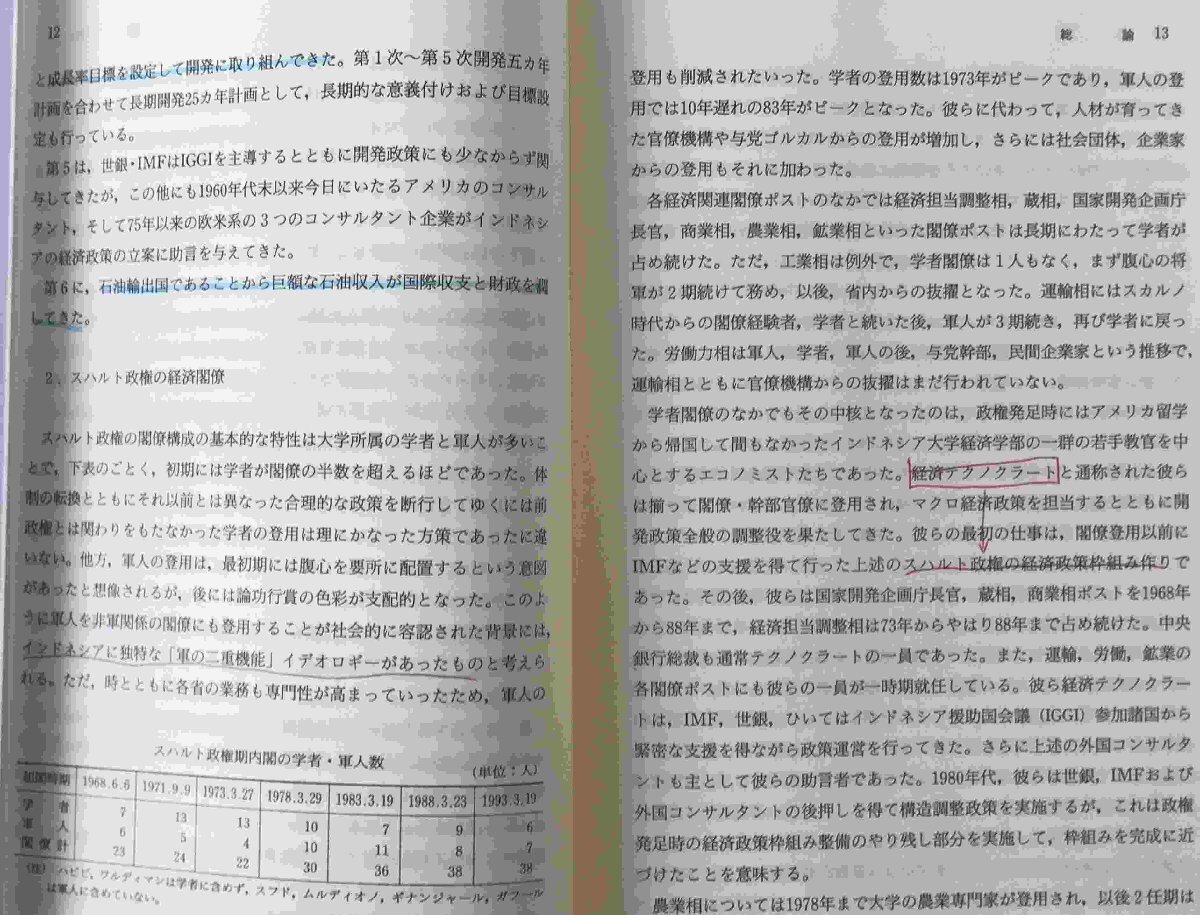 12
と成長率目標を設定して開発に取り組んできた。第1次~第5次開発五カ年
計画を合わせて長期開発25カ年計画として,長期的な意義付けおよび目標設
定も行っている。
第5は,世銀・IMFはIGGIを主導するとともに開発政策にも少なからず関
与してきたが,この他にも1960年代末以来今日にいたるアメリカのコンサル
タント,そして75年以来の欧米系の3つのコンサルタント企業がインドネシ
アの経済政策の立案に助言を与えてきた。
第6に,石油輸出国であることから巨額な石油収入が国際収支と財政を潤
してきた。
2.スハルト政権の経済閣僚
スハルト政権の閣僚構成の基本的な特性は大学所属の学者と軍人が多いこ
とで,下表のごとく,初期には学者が閣僚の半数を超えるほどであった。体
制の転換とともにそれ以前とは異なった合理的な政策を断行してゆくには前
政権とは関わりをもたなかった学者の登用は理にかなった方策であったに違
いない。他方,軍人の登用は,最初期には腹心を要所に配置するという意図
があったと想像されるが,後には論功行賞の色彩が支配的となった。このよ
うに軍人を非軍関係の閣僚にも登用することが社会的に容認された背景には,
インドネシアに独特な「軍の二重機能」イデオロギーがあったものと考えら
れる。ただ,時とともに各省の業務も専門性が高まっていったため,軍人の
スハルト政権期内閣の学者・軍人数
(単位:人)
組閣時期 1968.6.6 1971.9.9 1973.3.27 1978.3.29 1983.3.19 1988.3.23 1993.3.19
学者 7 13 13 10 7 9 6
軍人 6 5 4 10 11 8 7
閣僚計 23 24 22 30 36 38 38
(注) ハビビ,ワルディマンは学者に含めず,スフド,ムルディオノ,ギナンジャール,ガフール
は軍人に含めていない。
総論 13
登用も削減されたいった。学者の登用数は1973年がピークであり,軍人の登
用では10年遅れの83年がピークとなった。彼らに代わって,人材が育ってき
た官僚機構や与党ゴルカルからの登用が増加し,さらには社会団体,企業家
からの登用もそれに加わった。
各経済関連閣僚ポストのなかでは経済担当調整相,蔵相,国家開発企画庁
長官,商業相,農業相,鉱業相といった閣僚ポストは長期にわたって学者が
占め続けた。ただ,工業相は例外で,学者閣僚は1人もなく,まず腹心の将
軍が2期続けて務め,以後,省内からの抜擢となった。運輸相にはスカルノ
時代からの閣僚経験者,学者と続いた後,軍人が3期続き,再び学者に戻っ
た。労働力相は軍人,学者,軍人の後,与党幹部,民間企業家という推移で,
運輸相とともに官僚機構からの抜擢はまだ行われていない。
学者閣僚のなかでもその中核となったのは,政権発足時にはアメリカ留学
から帰国して間もなかったインドネシア大学経済学部の一群の若手教官を中
心とするエコノミストたちであった。経済テクノクラートと通称された彼ら
は揃って閣僚・幹部官僚に登用され,マクロ経済政策を担当するとともに開
発政策全般の調整役を果たしてきた。彼らの最初の仕事は,閣僚登用以前に
IMFなどの支援を得て行った上述のスハルト政権の経済政策枠組み作りで
あった。その後,彼らは国家開発企画庁長官,蔵相,商業相ポストを1968年
から88年まで,経済担当調整相は73年からやはり88年まで占め続けた。中央
銀行総裁も通常テクノクラートの一員であった。また,運輸,労働,鉱業の
各閣僚ポストにも彼らの一員が一時期就任している。彼ら経済テクノクラー
トは,IMF,世銀,ひいてはインドネシア援助国会議(IGGI)参加諸国から
緊密な支援を得ながら政策運営を行ってきた。さらに上述の外国コンサルタ
ントも主として彼らの助言者であった。1980年代,彼らは世銀,IMFおよび
外国コンサルタントの後押しを得て構造調整政策を実施するが,これは政権
発足時の経済政策枠組み整備のやり残し部分を実施して,枠組みを完成に近
づけたことを意味する。
農業相については1978年まで大学の農業専門家が登用され,以後2任期は